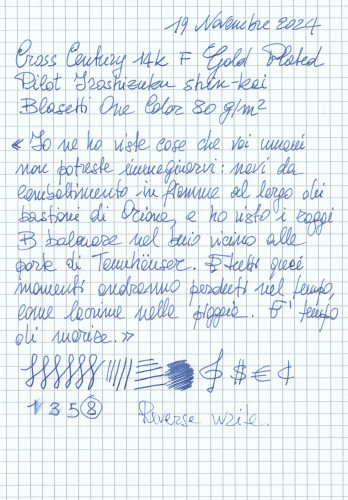 19 Novembre 2024
Cross Century 14k F Gold Plated
Pilot Iroshizuku shin-kai
Blasetti One Color 80 g/m²
« Io ne ho viste cose che voi umani
non potreste immaginarvi: navi da
combattimento in fiamme al largo dei
bastioni di Orione, e ho visto i raggi
B balenare nel buio vicino alle
porte di Tannhäuser. E tutti quei
momenti andranno perduti nel tempo,
come lacrime nella pioggia. E' tempo
di morire. »
$ € ¢
1 3 5 8
Reverse write.